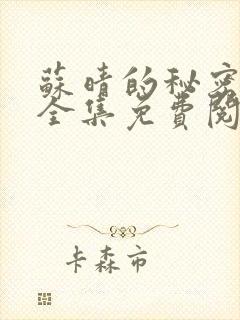 蘇晴的秘密
全集免費閱
卡森市